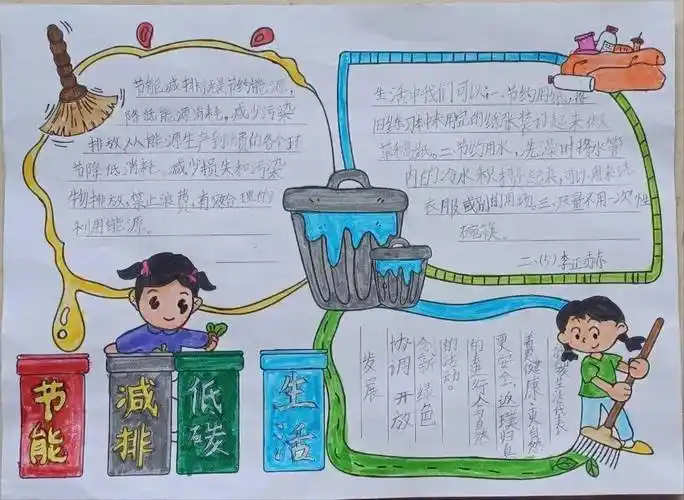 节能减排就是节约能源,
降低能源消耗,减少污染
排放从能源生产到消费的各个环
节降低消耗、减少损失和污染
物排放,禁止浪费,有效合理的
利用能源。
生活中我们可以:一、节约用纸,将
旧练习本未用完的纸张装订起来做
草稿纸。二、节约用水,洗澡时将水管
内的冷水积到起来,可以用来洗
衣服或别的用场。三、尽量不用一次性
碗筷。
二、(5) 李正赫
生活代表
着更健康、更自然
更安全,返璞归真
的进行人与自然
的活动。
创新 绿色
协调 开放
发展
节能
减排
低碳
生活